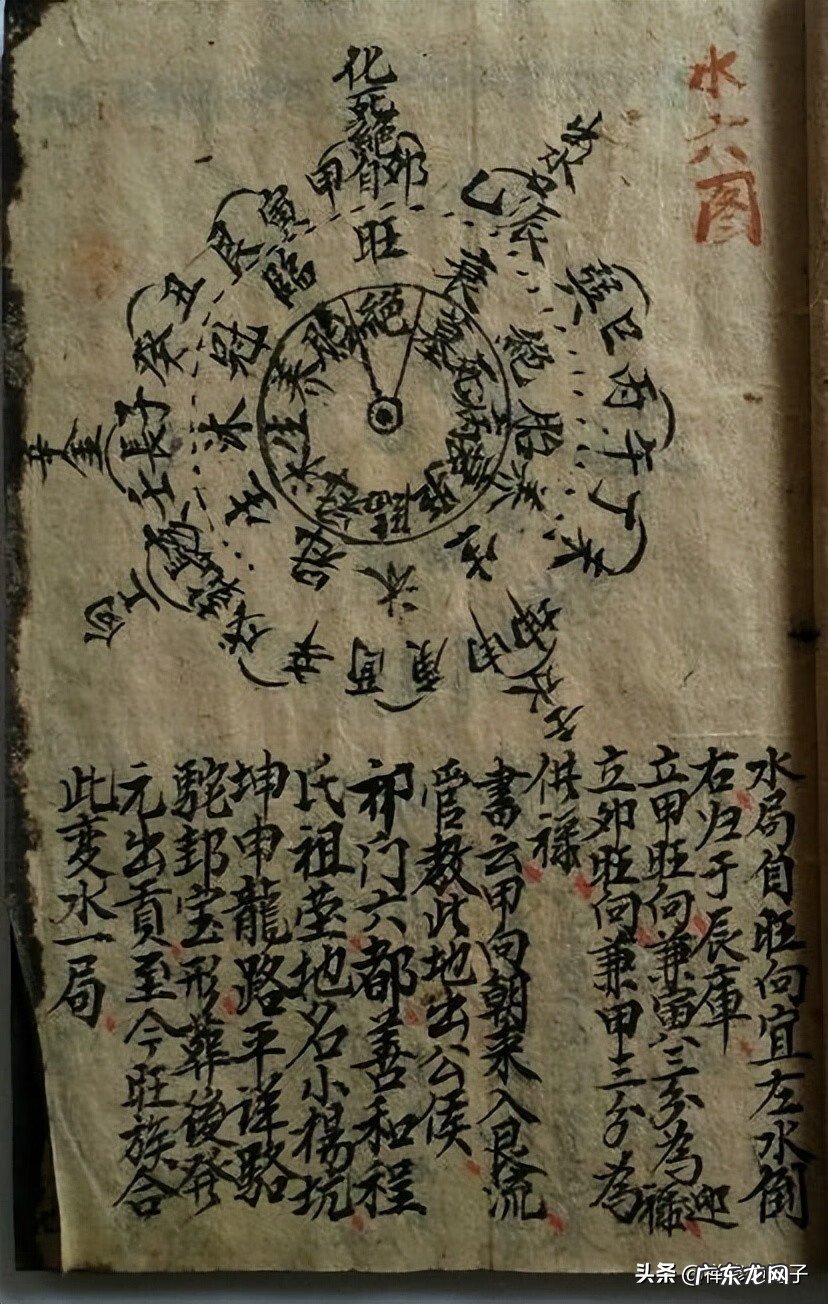 水六图
化死絕自
甲卯
乙辰
巽巳
丙午
丁未
坤申
庚酉
辛戌
壬子
癸丑
艮寅
旺
衰
絕
胎
养
沐
冠
生
沐
冠
臨
絕
墓
死
病
臨
冠
沐
生
养
胎
水局自旺向宜左水倒
右归于辰庫
立甲旺向兼寅三分為迎祿
立卯旺向兼甲三分為
供祿
書云甲向朝来入艮流
管教此地出公侯
祁门六都善和程
氏祖塋地名小楊坑
坤申龍路平详駱
駝封宝形葬後発
元出貢至今旺族合
此変水一局
头条 @广东龙网子